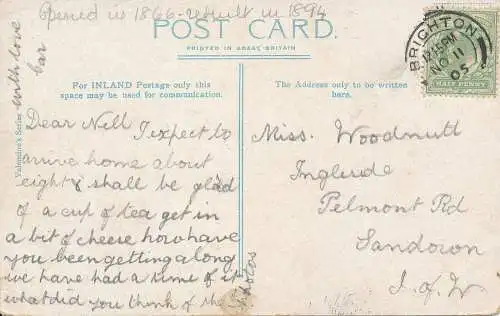 Opened in 1866 - rebuilt in 1894
POST CARD.
PRINTED IN GREAT BRITAIN
For INLAND Postage only this
space may be used for communication.
The Address only to be written
here.
BRIGHTON
12.45PM
NO 11
05
HALF PENNY
Valentine's Series
with love
Dear Nell I expect to
arrive home about
eight & shall be glad
of a cup of tea get in
a bit of cheese how have
you been getting along
we have had a time of it
what did you think of the
photos
Miss. Woodnutt
Ingleside
Pelmont Rd
Sandown
I. of W